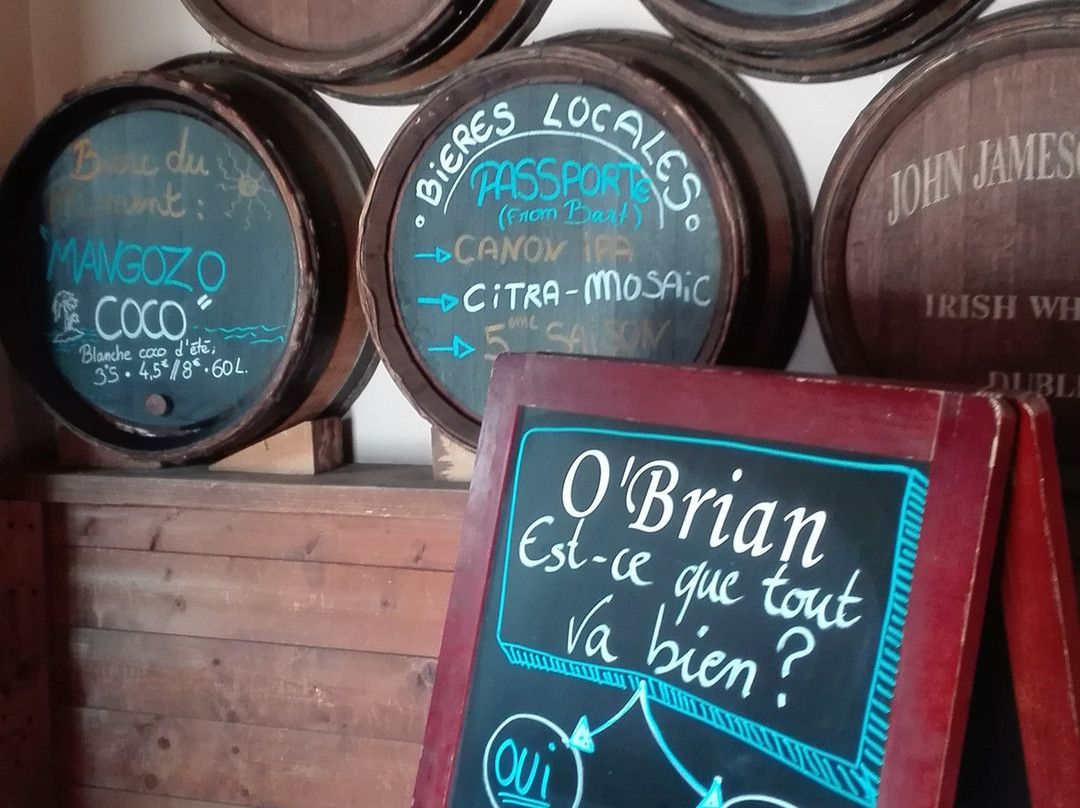 Bière du
moment :
"MANGOZO
COCO"
Blanche coco d'été;
3°5 • 4,5€ // 8€ • 60L.
BiERES LOCALES
PASSPORTE
(From Bart)
→ CANON iPA
→ CiTRA-MOSAiC
→ 5ème SAiSON
JOHN JAMES
IRISH WH
DUBL
O'Brian
Est-ce que tout
va bien ?
OUi